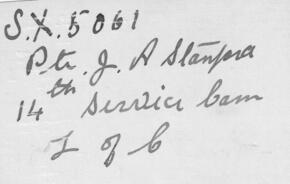 S.X. 5061
Pte. J. A Stanford
14th Service Cam
L of C